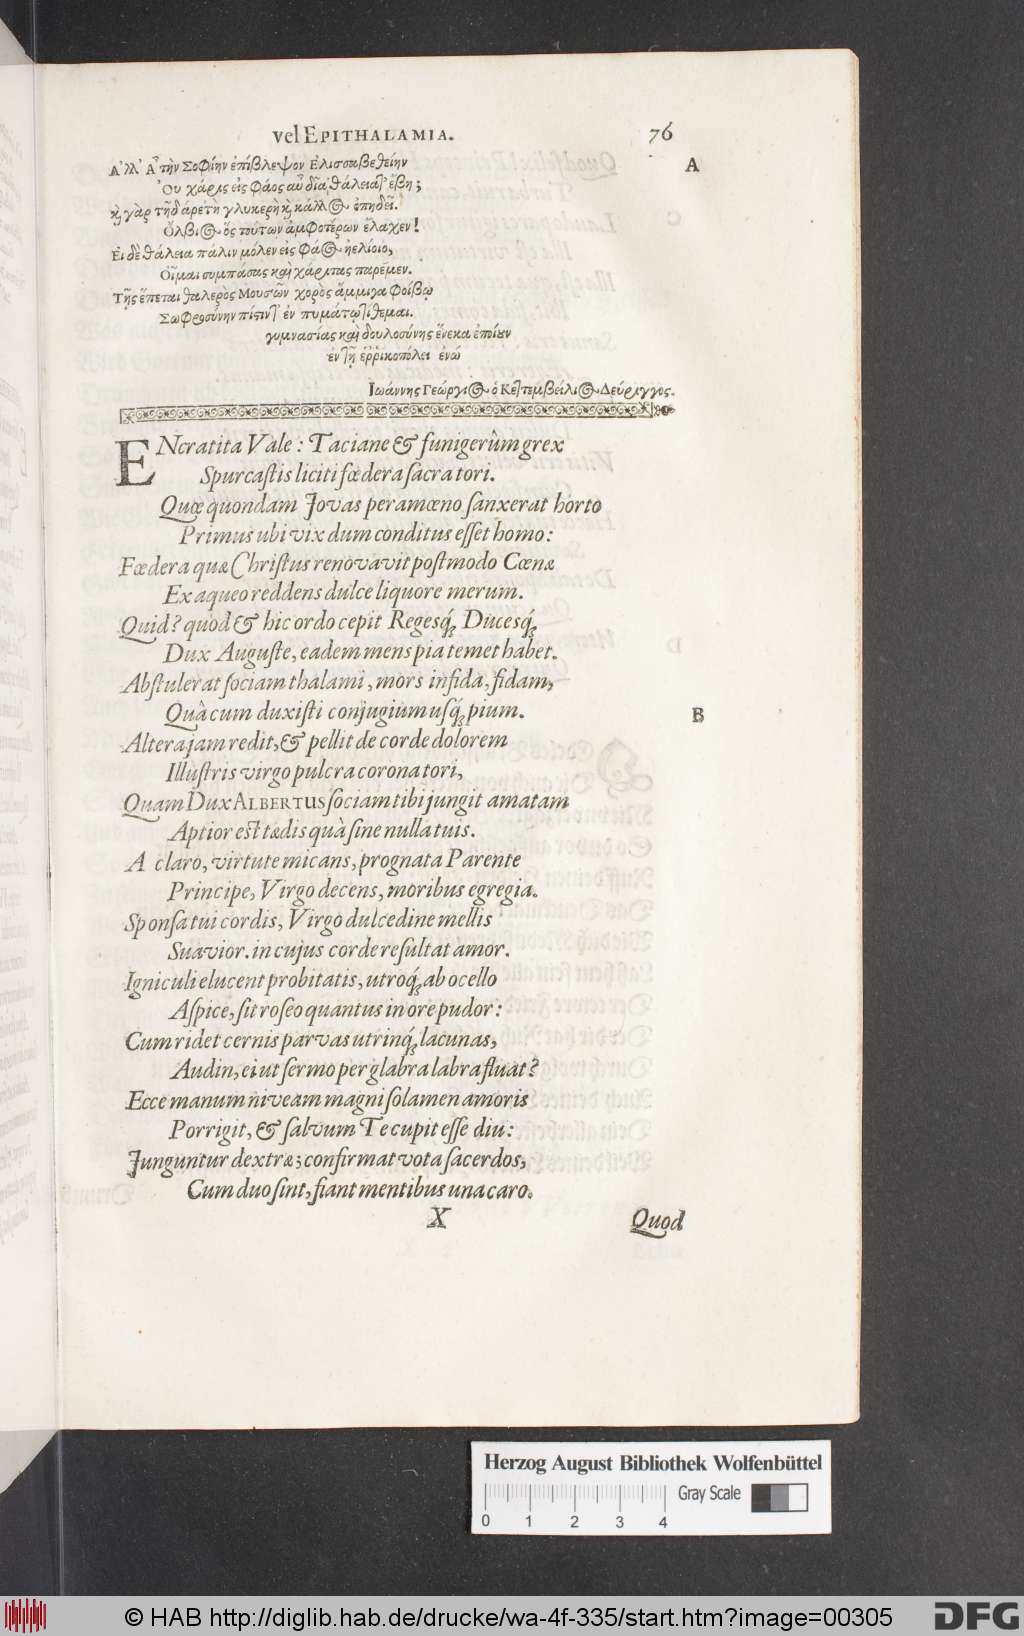 vel EPITHALAMIA. 76
Ἀλλ' Ἄτην Σοφίην ἐπίβλεψον Ἐλισσαβεθείην A
Ὀυ χάρις εἰς φάος αὖ δῖα, θάλεια τ' ἔβη;
κ γὰρ τῆδ' ἀρετὴ γλυκερὴ κ κάλλος ὀπηδεῖ.
Ὄλβιος ὅς τούτων ἀμφοτέρων ἔλαχεν!
Εἰ δὲ θάλεια πάλιν μόλεν εἰς φάος ἠελίοιο,
Οἶμαι συμπάσας καὶ χάριτας παρέμεν.
Τῆς ἕπεται θαλερὸς Μουσῶν χορὸς ἄμμιγα Φοίβῳ
Σωφροσύνην πίστιν τ' ἐν πυμάτῳ τίθεμαι.
γυμνασίας καὶ δουλοσύνης ἕνεκα ἐποίουν
ἐν τῇ ἑρρικοπόλει ἐνώ
Ἰωάννης Γεώργιος ὁ Κετεμβείλιος Δεύριγγος.
ENcratita Vale: Taciane & funigerûm grex
Spurcastis liciti fœdera sacra tori.
Quæ quondam Jovas peramœno sanxerat horto
Primus ubi vix dum conditus esset homo:
Fœdera quæ Christus renovavit postmodo Cœnæ
Ex aqueo reddens dulce liquore merum.
Quid? quòd & hic ordo cepit Regesq́; Ducesq́;
Dux Auguste, eadem mens pia temet habet.
Abstulerat sociam thalami, mors infida, fidam,
Quâcum duxisti conjugium usq́; pium. B
Altera jam redit, & pellit de corde dolorem
Illustris virgo pulcra corona tori,
Quam Dux ALBERTUS sociam tibi jungit amatam
Aptior est tædis quâ sine nulla tuis.
A claro, virtute micans, prognata Parente
Principe, Virgo decens, moribus egregia.
Sponsa tui cordis, Virgo dulcedine mellis
Suavior. in cujus corde resultat amor.
Igniculi elucent probitatis, utroq́; ab ocello
Aspice, sit roseo quantus in ore pudor:
Cum ridet cernis parvas utrinq́; lacunas,
Audin, ei ut sermo per glabra labra fluat?
Ecce manum niveam magni solamen amoris
Porrigit, & salvum Te cupit esse diu:
Junguntur dextræ; confirmat vota sacerdos,
Cum duo sint, fiant mentibus una caro.
X Quod
Herzog August Bibliothek Wolfenbüttel
Gray Scale
0 1 2 3 4
© HAB http://diglib.hab.de/drucke/wa-4f-335/start.htm?image=00305 DFG